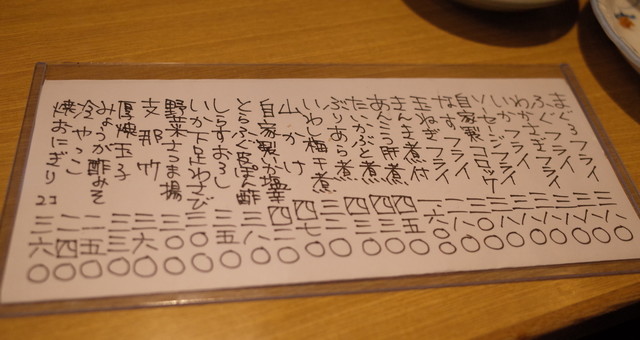 まぐろフライ 三八〇
ふぐフライ 三八〇
わかさぎフライ 三八〇
いかフライ 三八〇
ソーセージフライ
自家製コロッケ 二八〇
なすフライ
玉ねぎフライ
きんき煮付
あんこう肝煮
たいかぶと煮
ぶりあら煮
いわし梅干煮
山かけ
自家製いか塩辛 四二〇
とらふぐ皮ぽん酢 三八〇
しらすおろし 二五〇
いか下足わさび 三〇〇
野菜さつま揚 三〇〇
支那竹 三六〇
厚焼玉子 三三〇
みょうが酢みそ 二五〇
冷やっこ 二四〇
焼おにぎり 2コ 三六〇